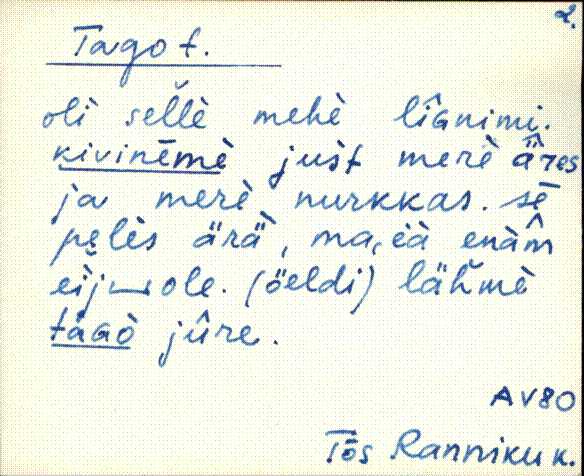 2.
Tago t.
oli sel̆l̆è mehè lîɢnimi.
kivinēmè jus̀t merè ä̂res
ja merè nurkkas. sē
pelès ärä̀, ma, èä enäm̂
eìj‿ole. (öeldi) läh̆mè
tàɢò jûre.
AV80
Tōs Ranniku k.